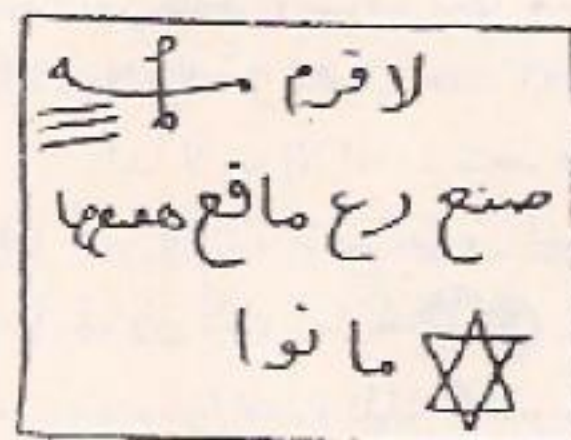 لا قرم
صنع رع ما قع هعها
ما نوا